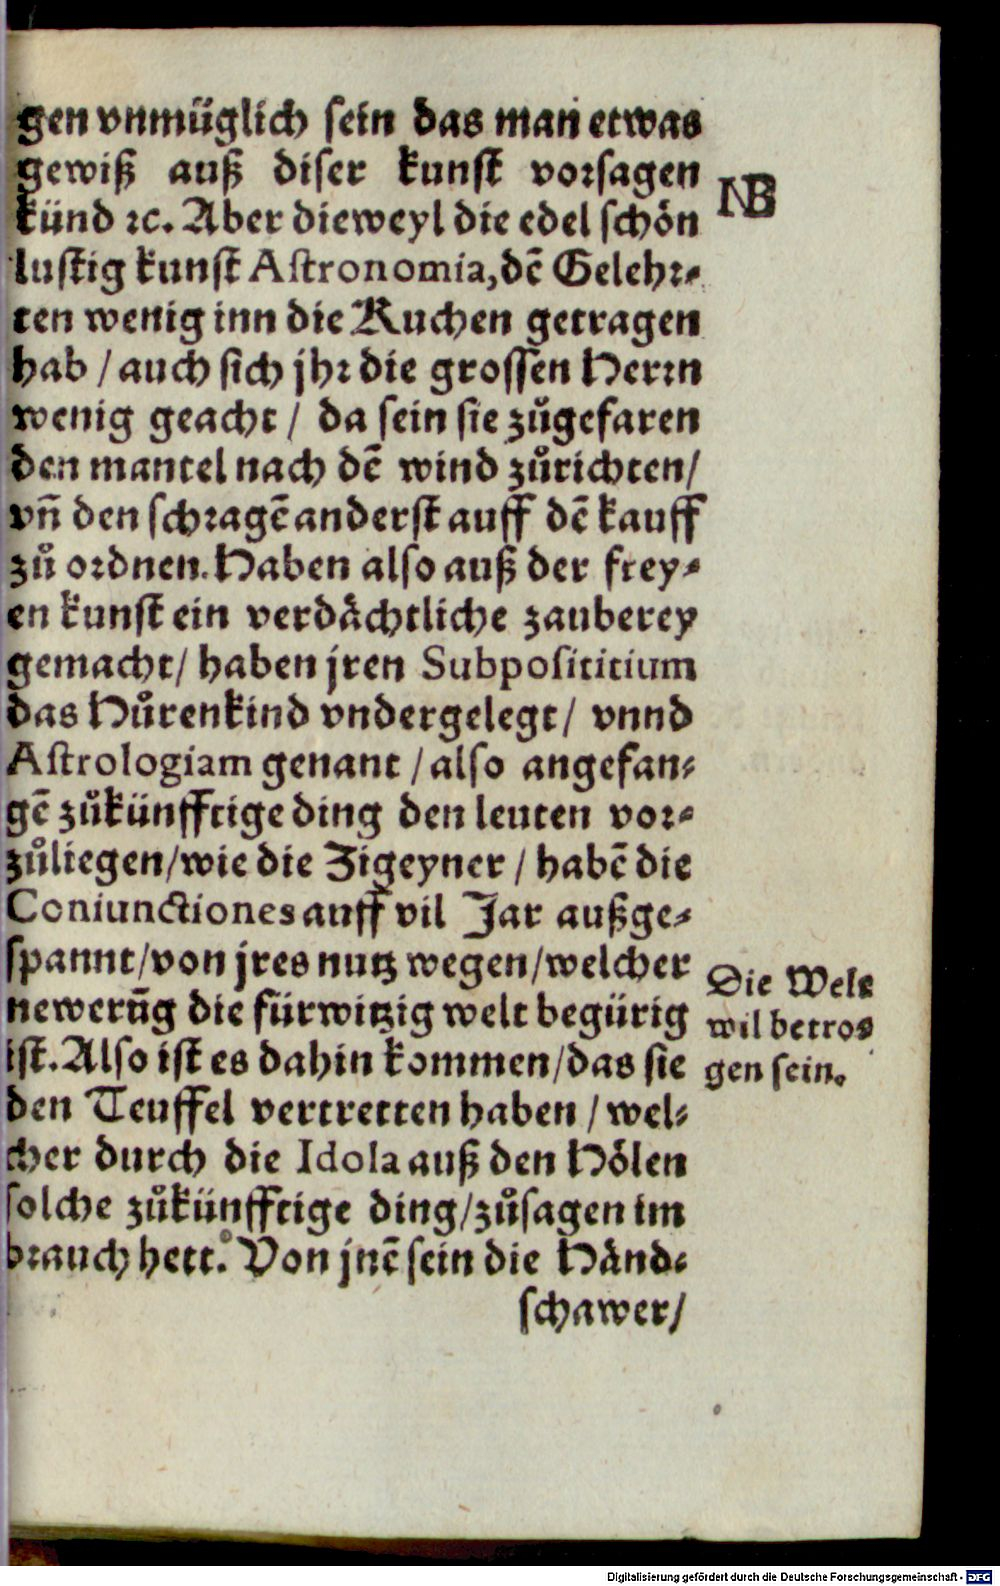 gen vnmüglich sein das man etwas
gewiß auß diser kunst vorsagen
künd ꝛc. Aber dieweyl die edel schön
lustig kunst Astronomia, dē Gelehr⸗
ten wenig inn die Kuchen getragen
hab / auch sich jhr die grossen Herrn
wenig geacht / da sein sie zůgefaren
den mantel nach dē wind zůrichten/
vñ den schragē anderst auff dē kauff
zů ordnen. Haben also auß der frey⸗
en kunst ein verdåchtliche zauberey
gemacht/ haben jren Subposititium
das Hůrenkind vndergelegt/ vnnd
Astrologiam genant / also angefan⸗
gē zůkünfftige ding den leuten vor⸗
zůliegen/wie die Zigeyner / habē die
Coniunctiones auff vil Jar außge⸗
spannt/von jres nutz wegen/welcher
newerūg die fürwitzig welt begürig
ist. Also ist es dahin kommen/das sie
den Teuffel vertretten haben / wel⸗
cher durch die Idola auß den Hölen
solche zůkünfftige ding/zůsagen im
brauch hett. Von jnē sein die Händ⸗
schawer/
NB
Die Welt
wil betro⸗
gen sein.
Digitalisierung gefördert durch die Deutsche Forschungsgemeinschaft - DFG